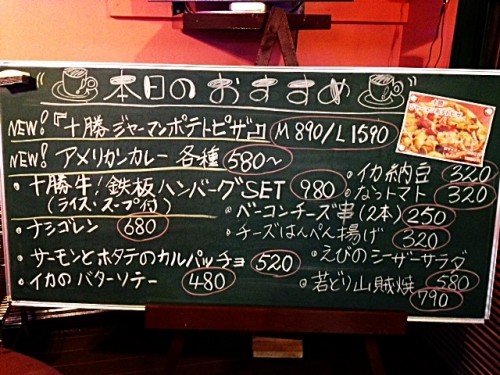 本日のおすすめ
NEW! 『十勝ジャーマンポテトピザ』 M 890/L 1590
NEW! アメリカンカレー 各種 580～
・十勝牛!鉄板ハンバーグSET 980
(ライス・スープ付)
・ナシゴレン 680
・サーモンとホタテのカルパッチョ 520
・イカのバターソテー 480
・イカ納豆 320
・なっトマト 320
・ベーコンチーズ串(2本) 250
・チーズはんぺん揚げ 320
・えびのシーザーサラダ 580
・若どり山賊焼 790